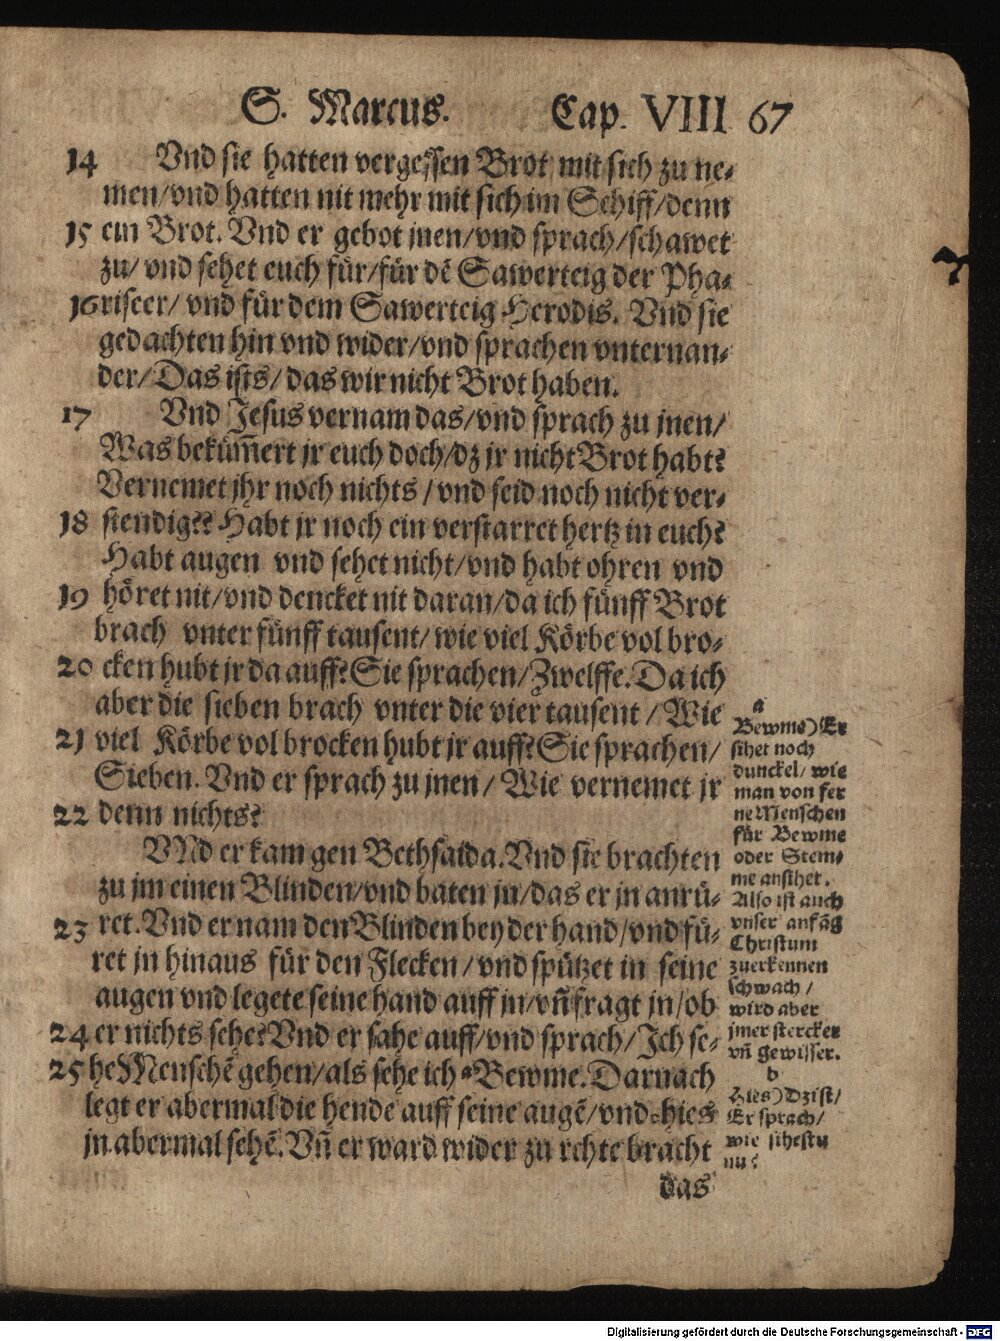 S. Marcus. Cap. VIII 67
14 Vnd sie hatten vergessen Brot mit sich zu ne-
men/vnd hatten nit mehr mit sich im Schiff/denn
15 ein Brot. Vnd er gebot jnen/vnd sprach/schawet
zu/vnd sehet euch für/für dē Sawerteig der Pha-
16 riseer/vnd für dem Sawerteig Herodis. Vnd sie
gedachten hin vnd wider/vnd sprachen vnternan-
der/Das ists/das wir nicht Brot haben.
17 Vnd Jesus vernam das/vnd sprach zu jnen/
Was bekümert jr euch doch/dz jr nicht Brot habt?
Vernemet jhr noch nichts/vnd seid noch nicht ver-
18 stendig?? Habt jr noch ein verstarret hertz in euch?
Habt augen vnd sehet nicht/vnd habt ohren vnd
19 höret nit/vnd dencket nit daran/da ich fünff Brot
brach vnter fünff tausent/wie viel Körbe vol bro-
20 cken hubt jr da auff? Sie sprachen/Zwelffe. Da ich
aber die sieben brach vnter die vier tausent/Wie
21 viel Körbe vol brocken hubt jr auff? Sie sprachen/
Sieben. Vnd er sprach zu jnen/Wie vernemet jr
22 denn nichts?
VNd er kam gen Bethsaida. Vnd sie brachten
zu jm einen Blinden/vnd baten jn/das er jn anrü-
23 ret. Vnd er nam den Blinden bey der hand/vnd fü-
ret jn hinaus für den Flecken/vnd spützet in seine
augen vnd legete seine hand auff jn/vn̄ fragt jn/ob
24 er nichts sehe? Vnd er sahe auff/vnd sprach/Ich se-
25 he Menschē gehen/als sehe ich a Bewme. Darnach
legt er abermal die hende auff seine augē/vnd b hies
jn abermal sehē. Vn̄ er ward wider zu rchte bracht
das
a
Bewme) Er
sihet noch
dunckel/wie
man von fer
ne Menschen
für Bewme
oder Stem-
me ansihet.
Also ist auch
vnser anfāg
Christum
zuerkennen
schwach/
wird aber
jmer stercker
vn̄ gewisser.
b
Hies) Dz ist/
Er sprach/
wie sihestu
nu?
Digitalisierung gefördert durch die Deutsche Forschungsgemeinschaft - DFG